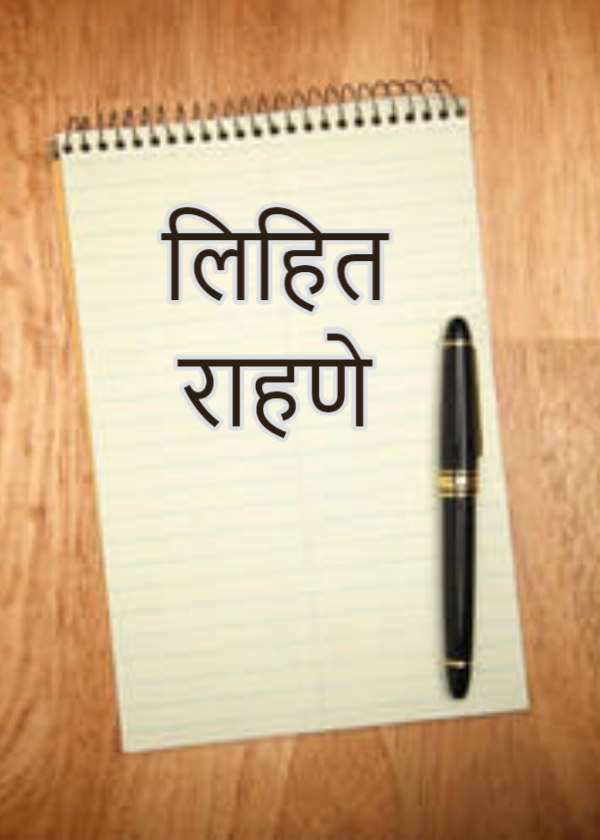 लिहित
राहणे